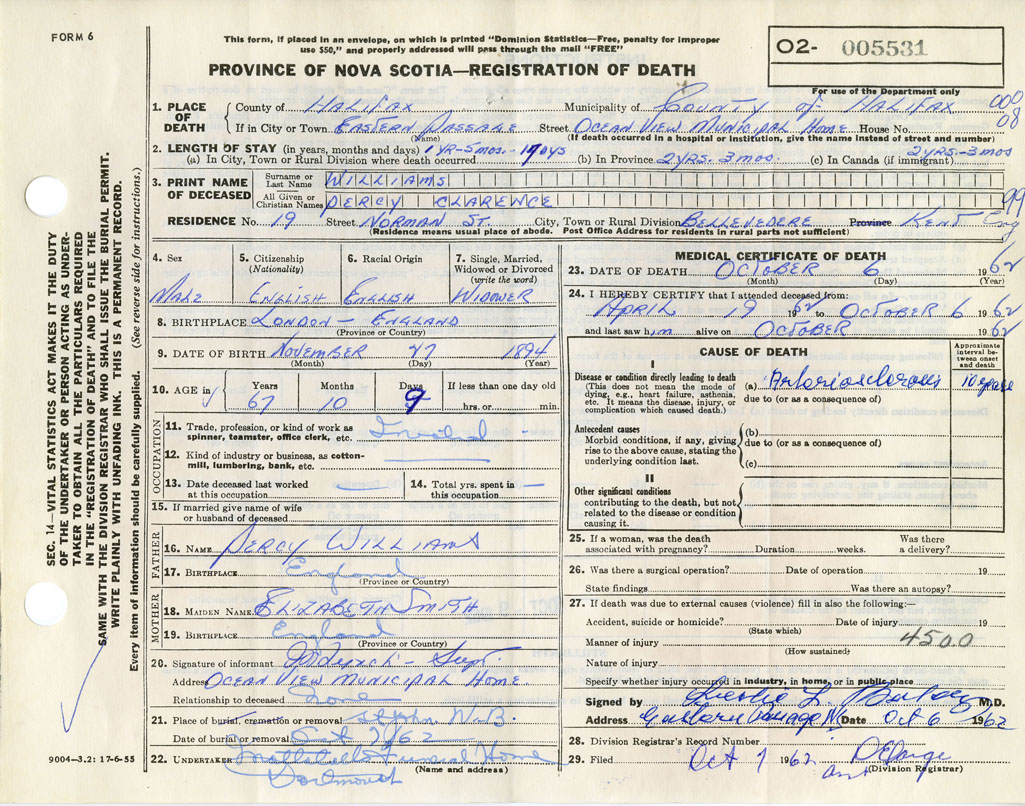 FORM 6
This form, if placed in an envelope, on which is printed "Dominion Statistics—Free, penalty for improper
use $50," and properly addressed will pass through the mail "FREE"
PROVINCE OF NOVA SCOTIA—REGISTRATION OF DEATH
O2- 005531
For use of the Department only
000
08
SEC. 14—VITAL STATISTICS ACT MAKES IT THE DUTY
OF THE UNDERTAKER OR PERSON ACTING AS UNDER-
TAKER TO OBTAIN ALL THE PARTICULARS REQUIRED
IN THE "REGISTRATION OF DEATH" AND TO FILE THE
SAME WITH THE DIVISION REGISTRAR WHO SHALL ISSUE THE BURIAL PERMIT.
WRITE PLAINLY WITH UNFADING INK. THIS IS A PERMANENT RECORD.
Every item of information should be carefully supplied. (See reverse side for instructions.)
1. PLACE OF DEATH
County of HALIFAX Municipality of COUNTY of HALIFAX
If in City or Town EASTERN PASSAGE Street OCEAN VIEW MUNICIPAL HOME House No.
(Name) (If death occurred in a hospital or institution, give the name instead of street and number)
2. LENGTH OF STAY (in years, months and days)
(a) In City, Town or Rural Division where death occurred 1 YR-5 MOS. DAYS (b) In Province 2 YRS. 3 MOS. (c) In Canada (if immigrant) 2 YRS-3 MOS
3. PRINT NAME OF DECEASED
Surname or Last Name WILLIAMS
All Given or Christian Names PERCY CLARENCE
99
RESIDENCE No. 19 Street NORMAN ST. City, Town or Rural Division BELLEVEDERE Province KENT Eng
(Residence means usual place of abode. Post Office Address for residents in rural parts not sufficient)
4. Sex
MALE
5. Citizenship
(Nationality)
ENGLISH
6. Racial Origin
ENGLISH
7. Single, Married,
Widowed or Divorced
(write the word)
WIDOWER
8. BIRTHPLACE LONDON - ENGLAND
(Province or Country)
9. DATE OF BIRTH NOVEMBER 27 1894
(Month) (Day) (Year)
10. AGE in
Years 67
Months 10
Days 9
If less than one day old
hrs. or min.
OCCUPATION
11. Trade, profession, or kind of work as
spinner, teamster, office clerk, etc. Invalid -
12. Kind of industry or business, as cotton-
mill, lumbering, bank, etc.
13. Date deceased last worked
at this occupation
14. Total yrs. spent in
this occupation
15. If married give name of wife
or husband of deceased
FATHER
16. NAME PERCY WILLIAMS
17. BIRTHPLACE England
(Province or Country)
MOTHER
18. MAIDEN NAME ELIZABETH SMITH
19. BIRTHPLACE England
(Province or Country)
20. Signature of informant - Supt.
Address OCEAN VIEW MUNICIPAL HOME
Relationship to deceased none
21. Place of burial, cremation or removal St John N.B.
Date of burial or removal Oct 7/62
22. UNDERTAKER Funeral Home
Dartmouth
(Name and address)
9004—3.2: 17-6-55
MEDICAL CERTIFICATE OF DEATH
23. DATE OF DEATH OCTOBER 6 1962
(Month) (Day) (Year)
24. I HEREBY CERTIFY that I attended deceased from:
APRIL 19 62 to OCTOBER 6 1962
and last saw him alive on OCTOBER 1962
CAUSE OF DEATH
Approximate
interval be-
tween onset
and death
I
Disease or condition directly leading to death
(This does not mean the mode of
dying, e.g., heart failure, asthenia,
etc. It means the disease, injury, or
complication which caused death.)
(a) Arteriosclerosis 10 years
due to (or as a consequence of)
Antecedent causes
Morbid conditions, if any, giving
rise to the above cause, stating the
underlying condition last.
(b)
due to (or as a consequence of)
(c)
II
Other significant conditions
contributing to the death, but not
related to the disease or condition
causing it.
25. If a woman, was the death
associated with pregnancy? Duration weeks. Was there
a delivery?
26. Was there a surgical operation? Date of operation 19
State findings Was there an autopsy?
27. If death was due to external causes (violence) fill in also the following:—
Accident, suicide or homicide? Date of injury 19
(State which)
Manner of injury 4500
(How sustained)
Nature of injury
Specify whether injury occurred in industry, in home, or in public place
Signed by Leslie L. M.D.
Address Eastern Passage NS Date Oct 6 1962
28. Division Registrar's Record Number
29. Filed Oct 7 1962
(Division Registrar)